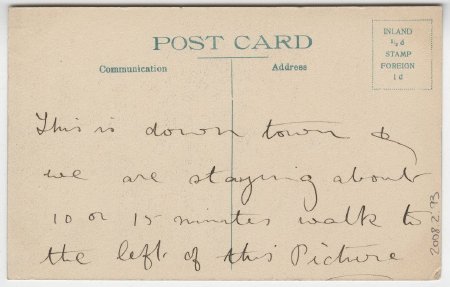 POST CARD
Communication
Address
INLAND
½d
STAMP
FOREIGN
1d
This is down town &
we are staying about
10 or 15 minutes walk to
the left of this Picture
2008.2.73